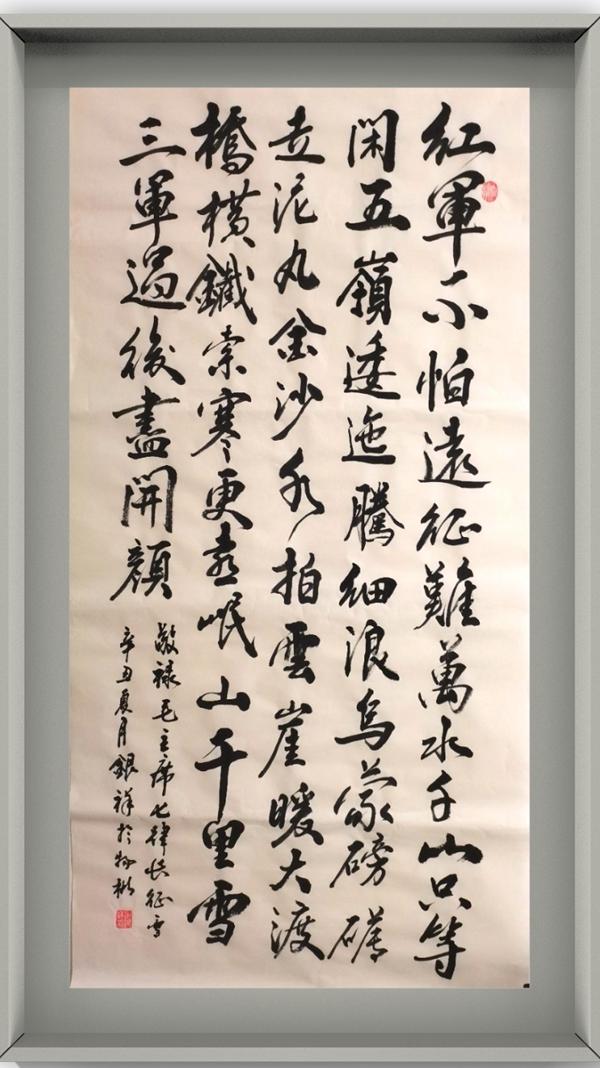 紅軍不怕遠征難萬水千山只等
閑五嶺逶迤騰細浪烏蒙磅礴
走泥丸金沙水拍雲崖暖大渡
橋橫鐵索寒更喜岷山千里雪
三軍過後盡開顏
敬禄毛主席七律長征
辛丑夏月銀祥於